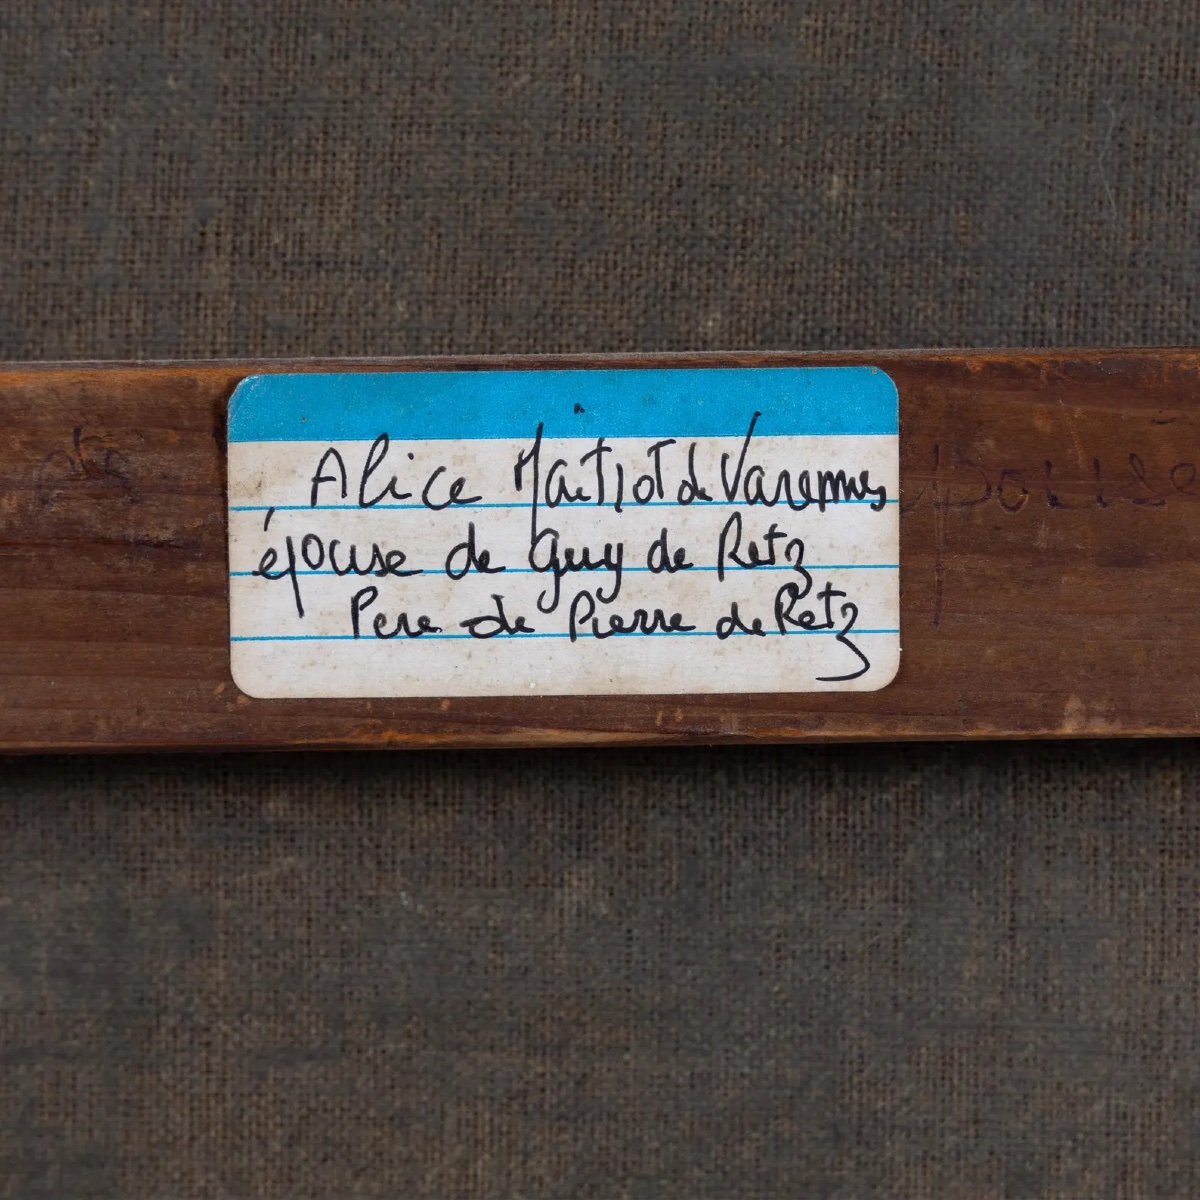 Alice Matiot de Varennes
épouse de Guy de Retz
Pere de Pierre de Retz